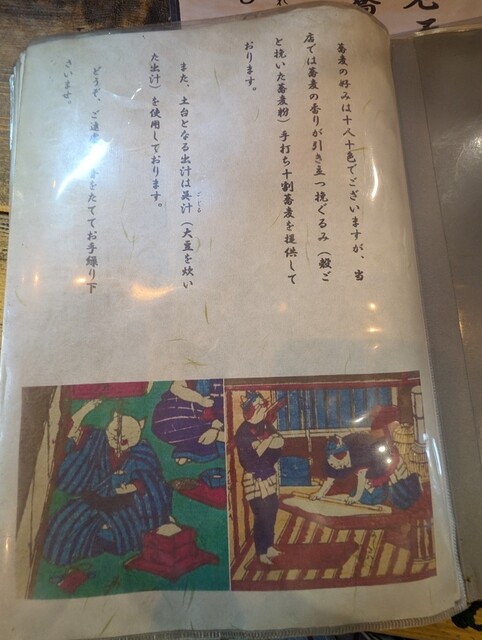 蕎麦の好みは十人十色でございますが、当
店では蕎麦の香りが引き立つ挽ぐるみ（殻ご
と挽いた蕎麦粉）手打ち十割蕎麦を提供して
おります。
また、土台となる出汁は呉汁（大豆を炊い
ごじる
た出汁）を使用しております。
どうぞ、ご遠慮 音をたててお手繰り下
さいませ。